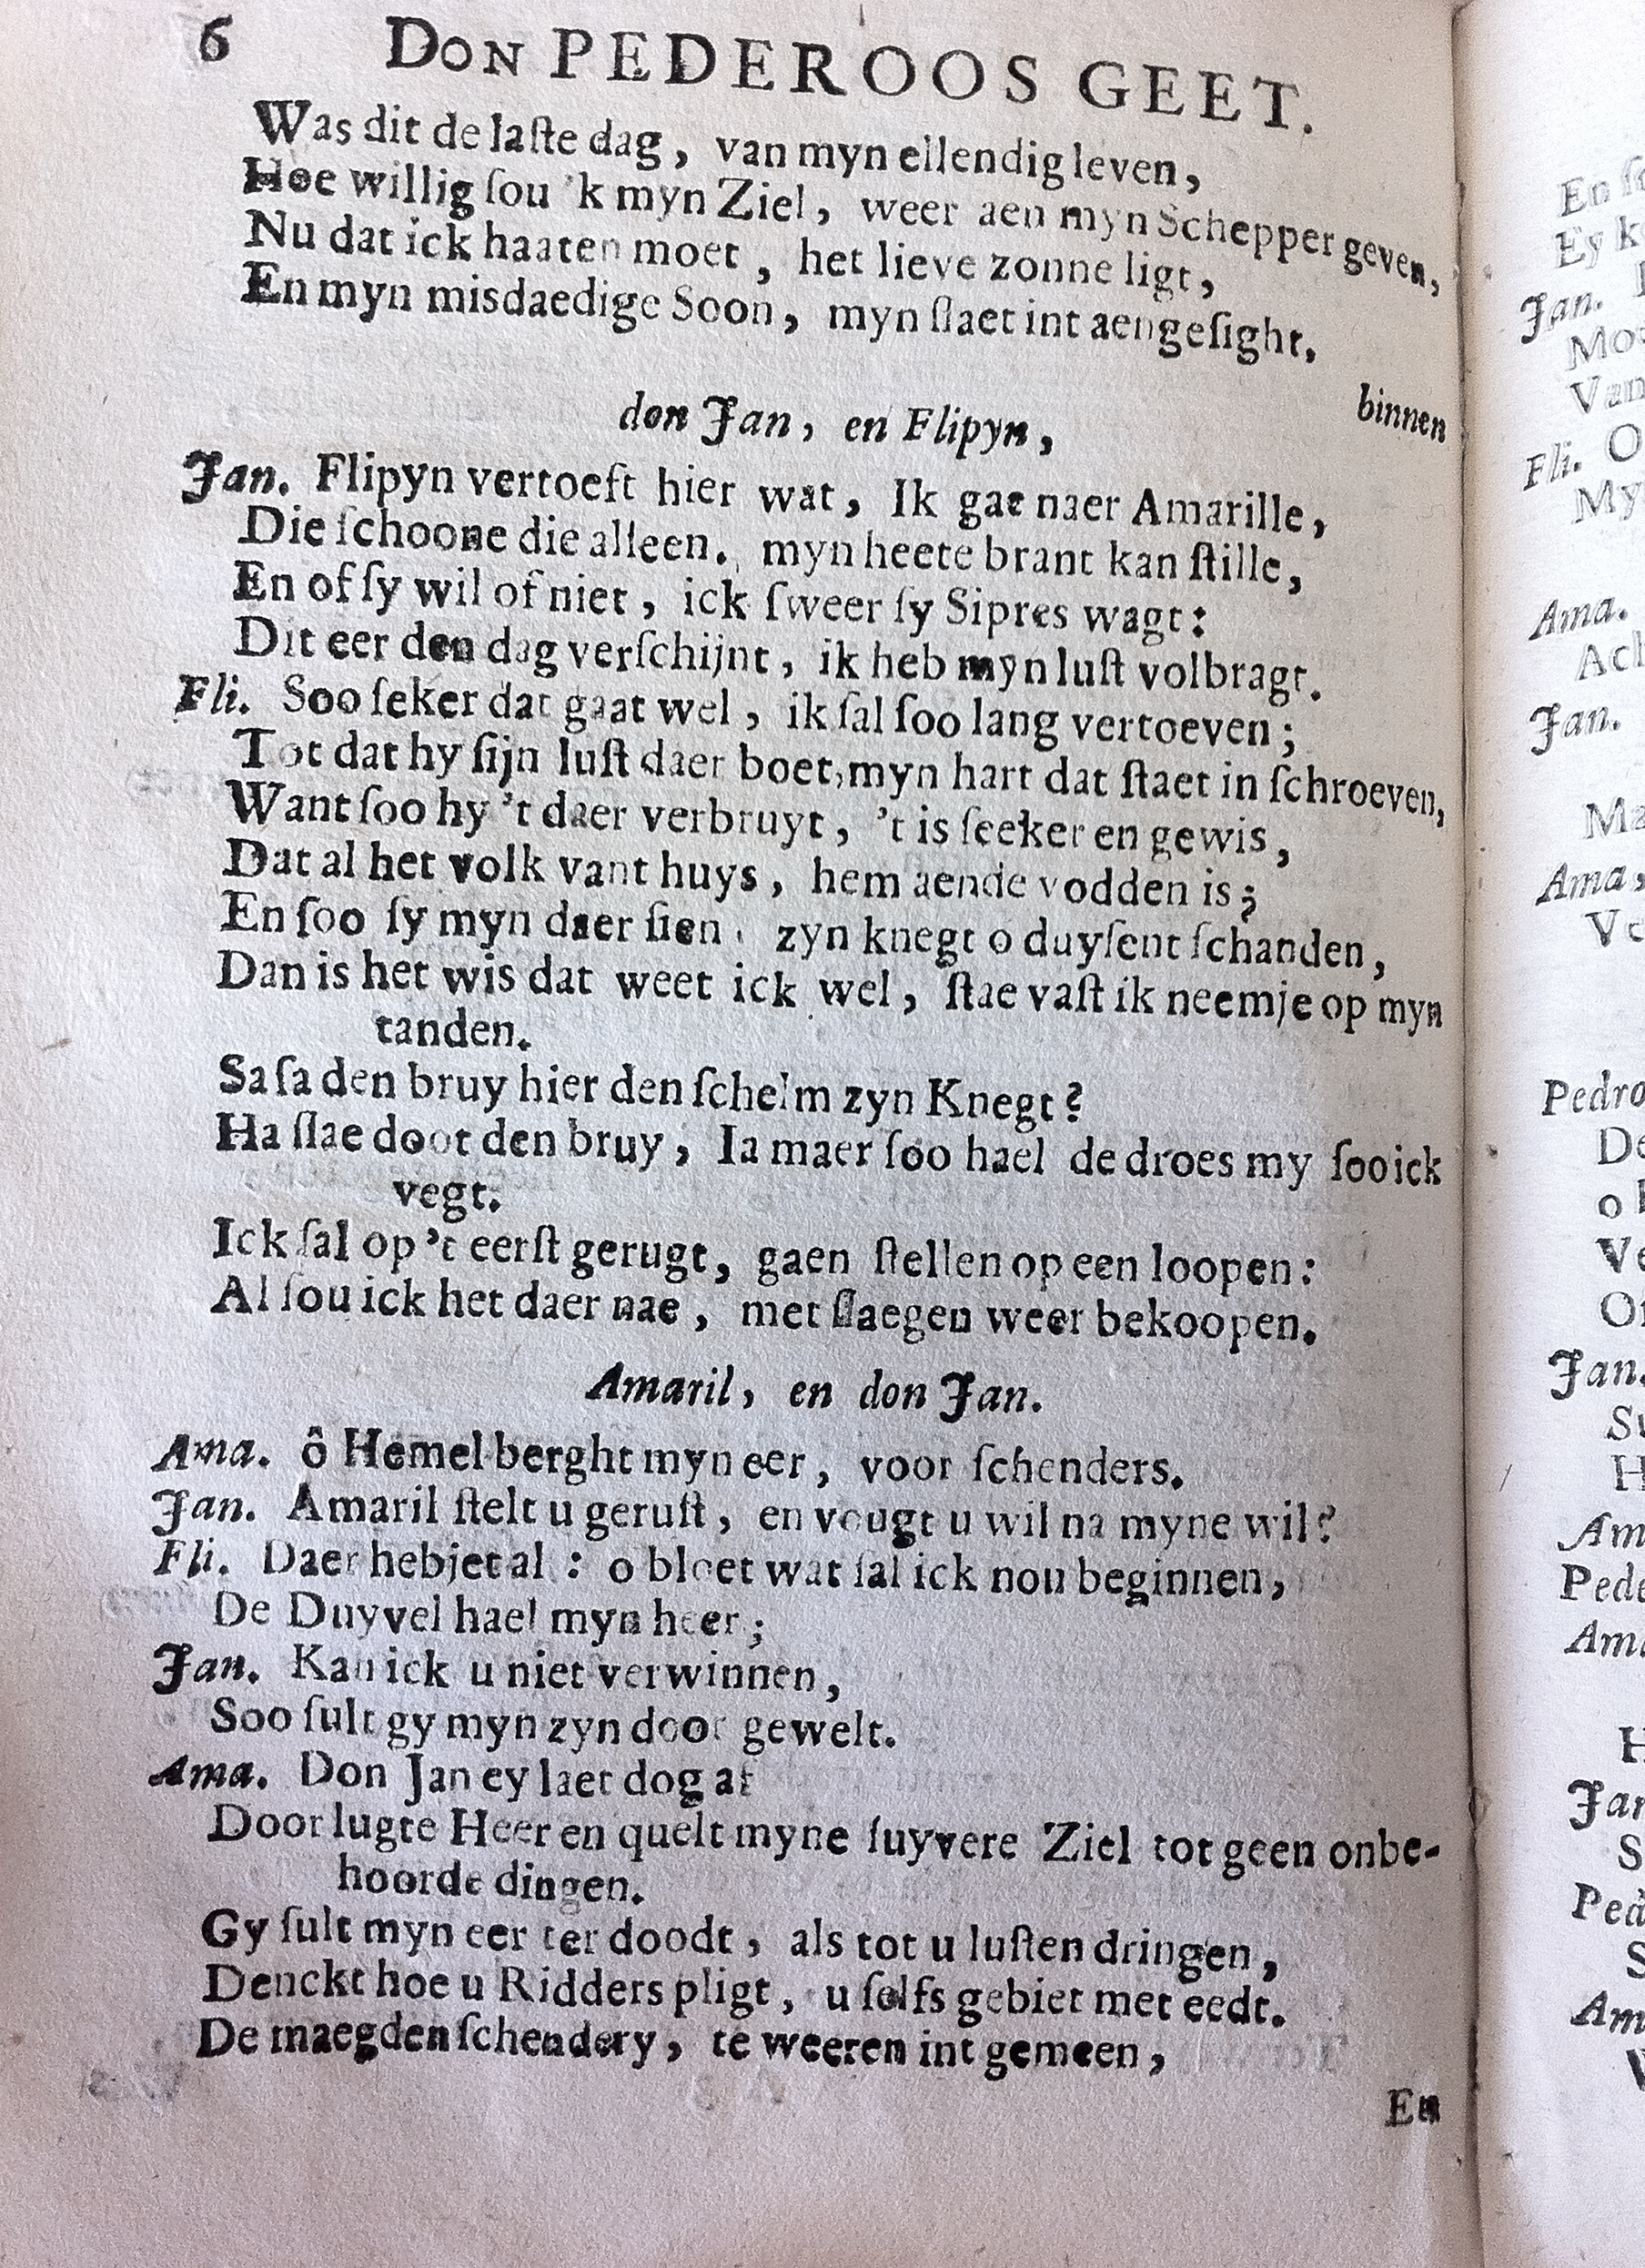 6 DON PEDEROOS GEET.
Was dit de laſte dag, van myn ellendig leven,
Hoe willig ſou 'k myn Ziel, weer aen myn Schepper geven,
Nu dat ick haaten moet, het lieve zonne ligt,
En myn misdaedige Soon, myn ſlaet int aengeſight.
binnen
don Jan, en Flipyn,
Jan. Flipyn vertoeft hier wat, Ik gae naer Amarille,
Die ſchoone die alleen. myn heete brant kan ſtille,
En of ſy wil of niet, ick ſweer ſy Sipres wagt:
Dit eer den dag verſchijnt, ik heb myn luſt volbragt.
Fli. Soo ſeker dat gaat wel, ik ſal ſoo lang vertoeven;
Tot dat hy ſijn luſt daer boet, myn hart dat ſtaet in ſchroeven,
Want ſoo hy 't daer verbruyt, 't is ſeeker en gewis,
Dat al het volk vant huys, hem aende vodden is;
En ſoo ſy myn daer ſien, zyn knegt o duyſent ſchanden,
Dan is het wis dat weet ick wel, ſtae vaſt ik neemje op myn
tanden.
Sa ſa den bruy hier den ſchelm zyn Knegt?
Ha ſlae doot den bruy, Ia maer ſoo hael de droes my ſoo ick
vegt.
Ick ſal op 't eerſt gerugt, gaen ſtellen op een loopen:
Al ſou ick het daer nae, met ſlaegen weer bekoopen.
Amaril, en don Jan.
Ama. ô Hemel berght myn eer, voor ſchenders.
Jan. Amaril ſtelt u geruſt, en vougt u wil na myne wil?
Fli. Daer hebjet al: o bloet wat ſal ick nou beginnen,
De Duyvel hael myn heer;
Jan. Kan ick u niet verwinnen,
Soo ſult gy myn zyn door gewelt.
Ama. Don Jan ey laet dog af
Door lugte Heer en quelt myne ſuyvere Ziel tot geen onbe-
hoorde dingen.
Gy ſult myn eer ter doodt, als tot u luſten dringen,
Denckt hoe u Ridders pligt, u ſelfs gebiet met eedt.
De maegden ſchendery, te weeren int gemeen,
En
Ey
Jan.
Van
Fli. O
My
Ama.
Jan.
Ama,
Pedro
De
Jan.
Am
Am